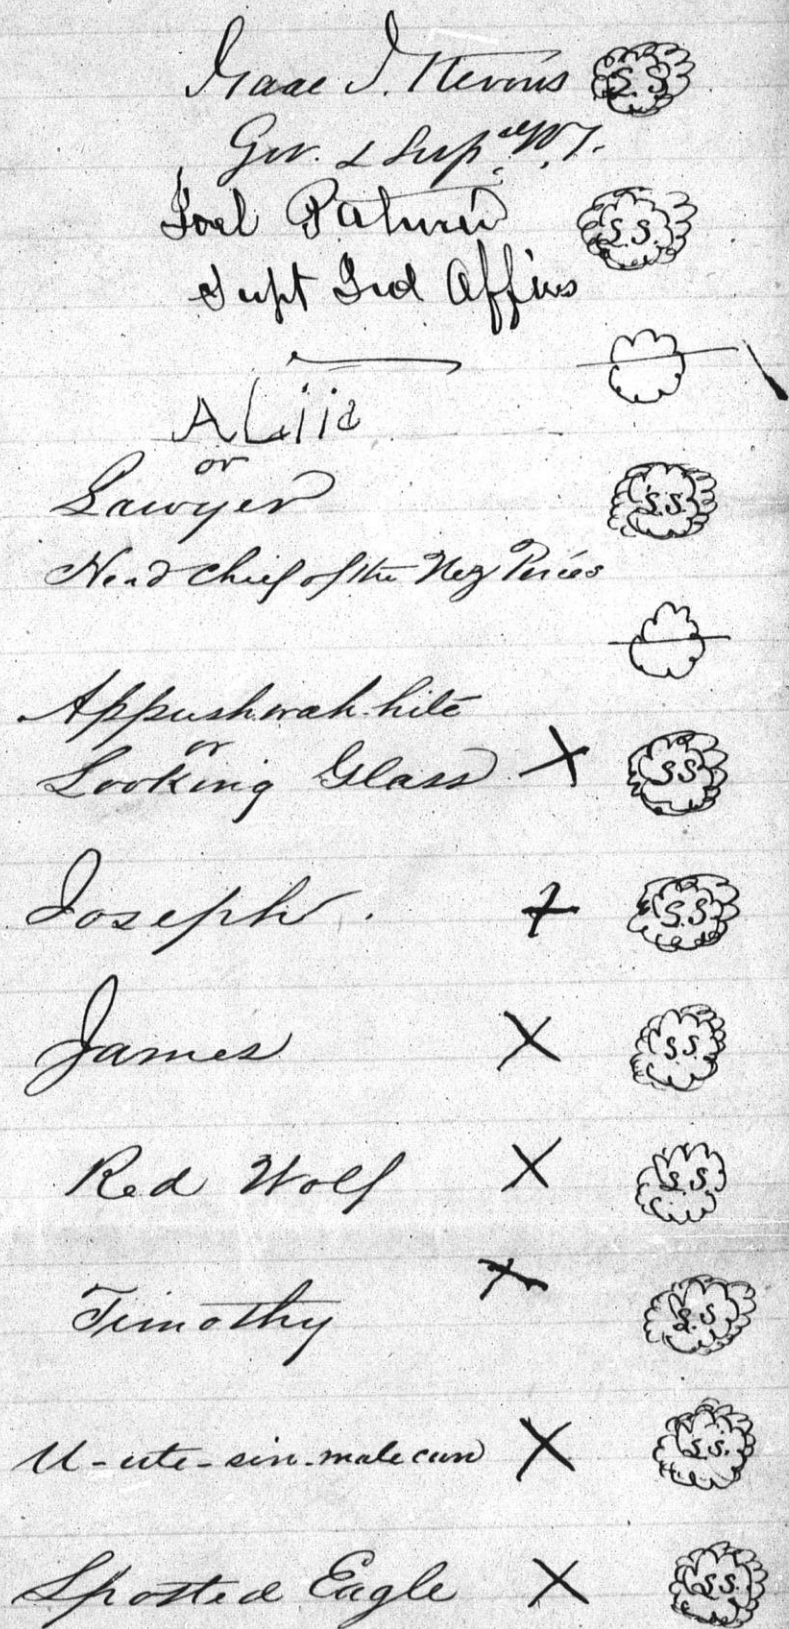 Isaac I. Stevens L.S.
Gov. & Sup. W.T.
Joel Palmer L.S.
Supt Ind Affires
ALiiia
or
Lawyer L.S.
Head Chief of the Nez Perces
Appushwah-hite
or
Looking Glass X L.S.
Joseph. X L.S.
James X L.S.
Red Wolf X L.S.
Timothy X L.S.
U-ute-sin-malecun X L.S.
Spotted Eagle X L.S.